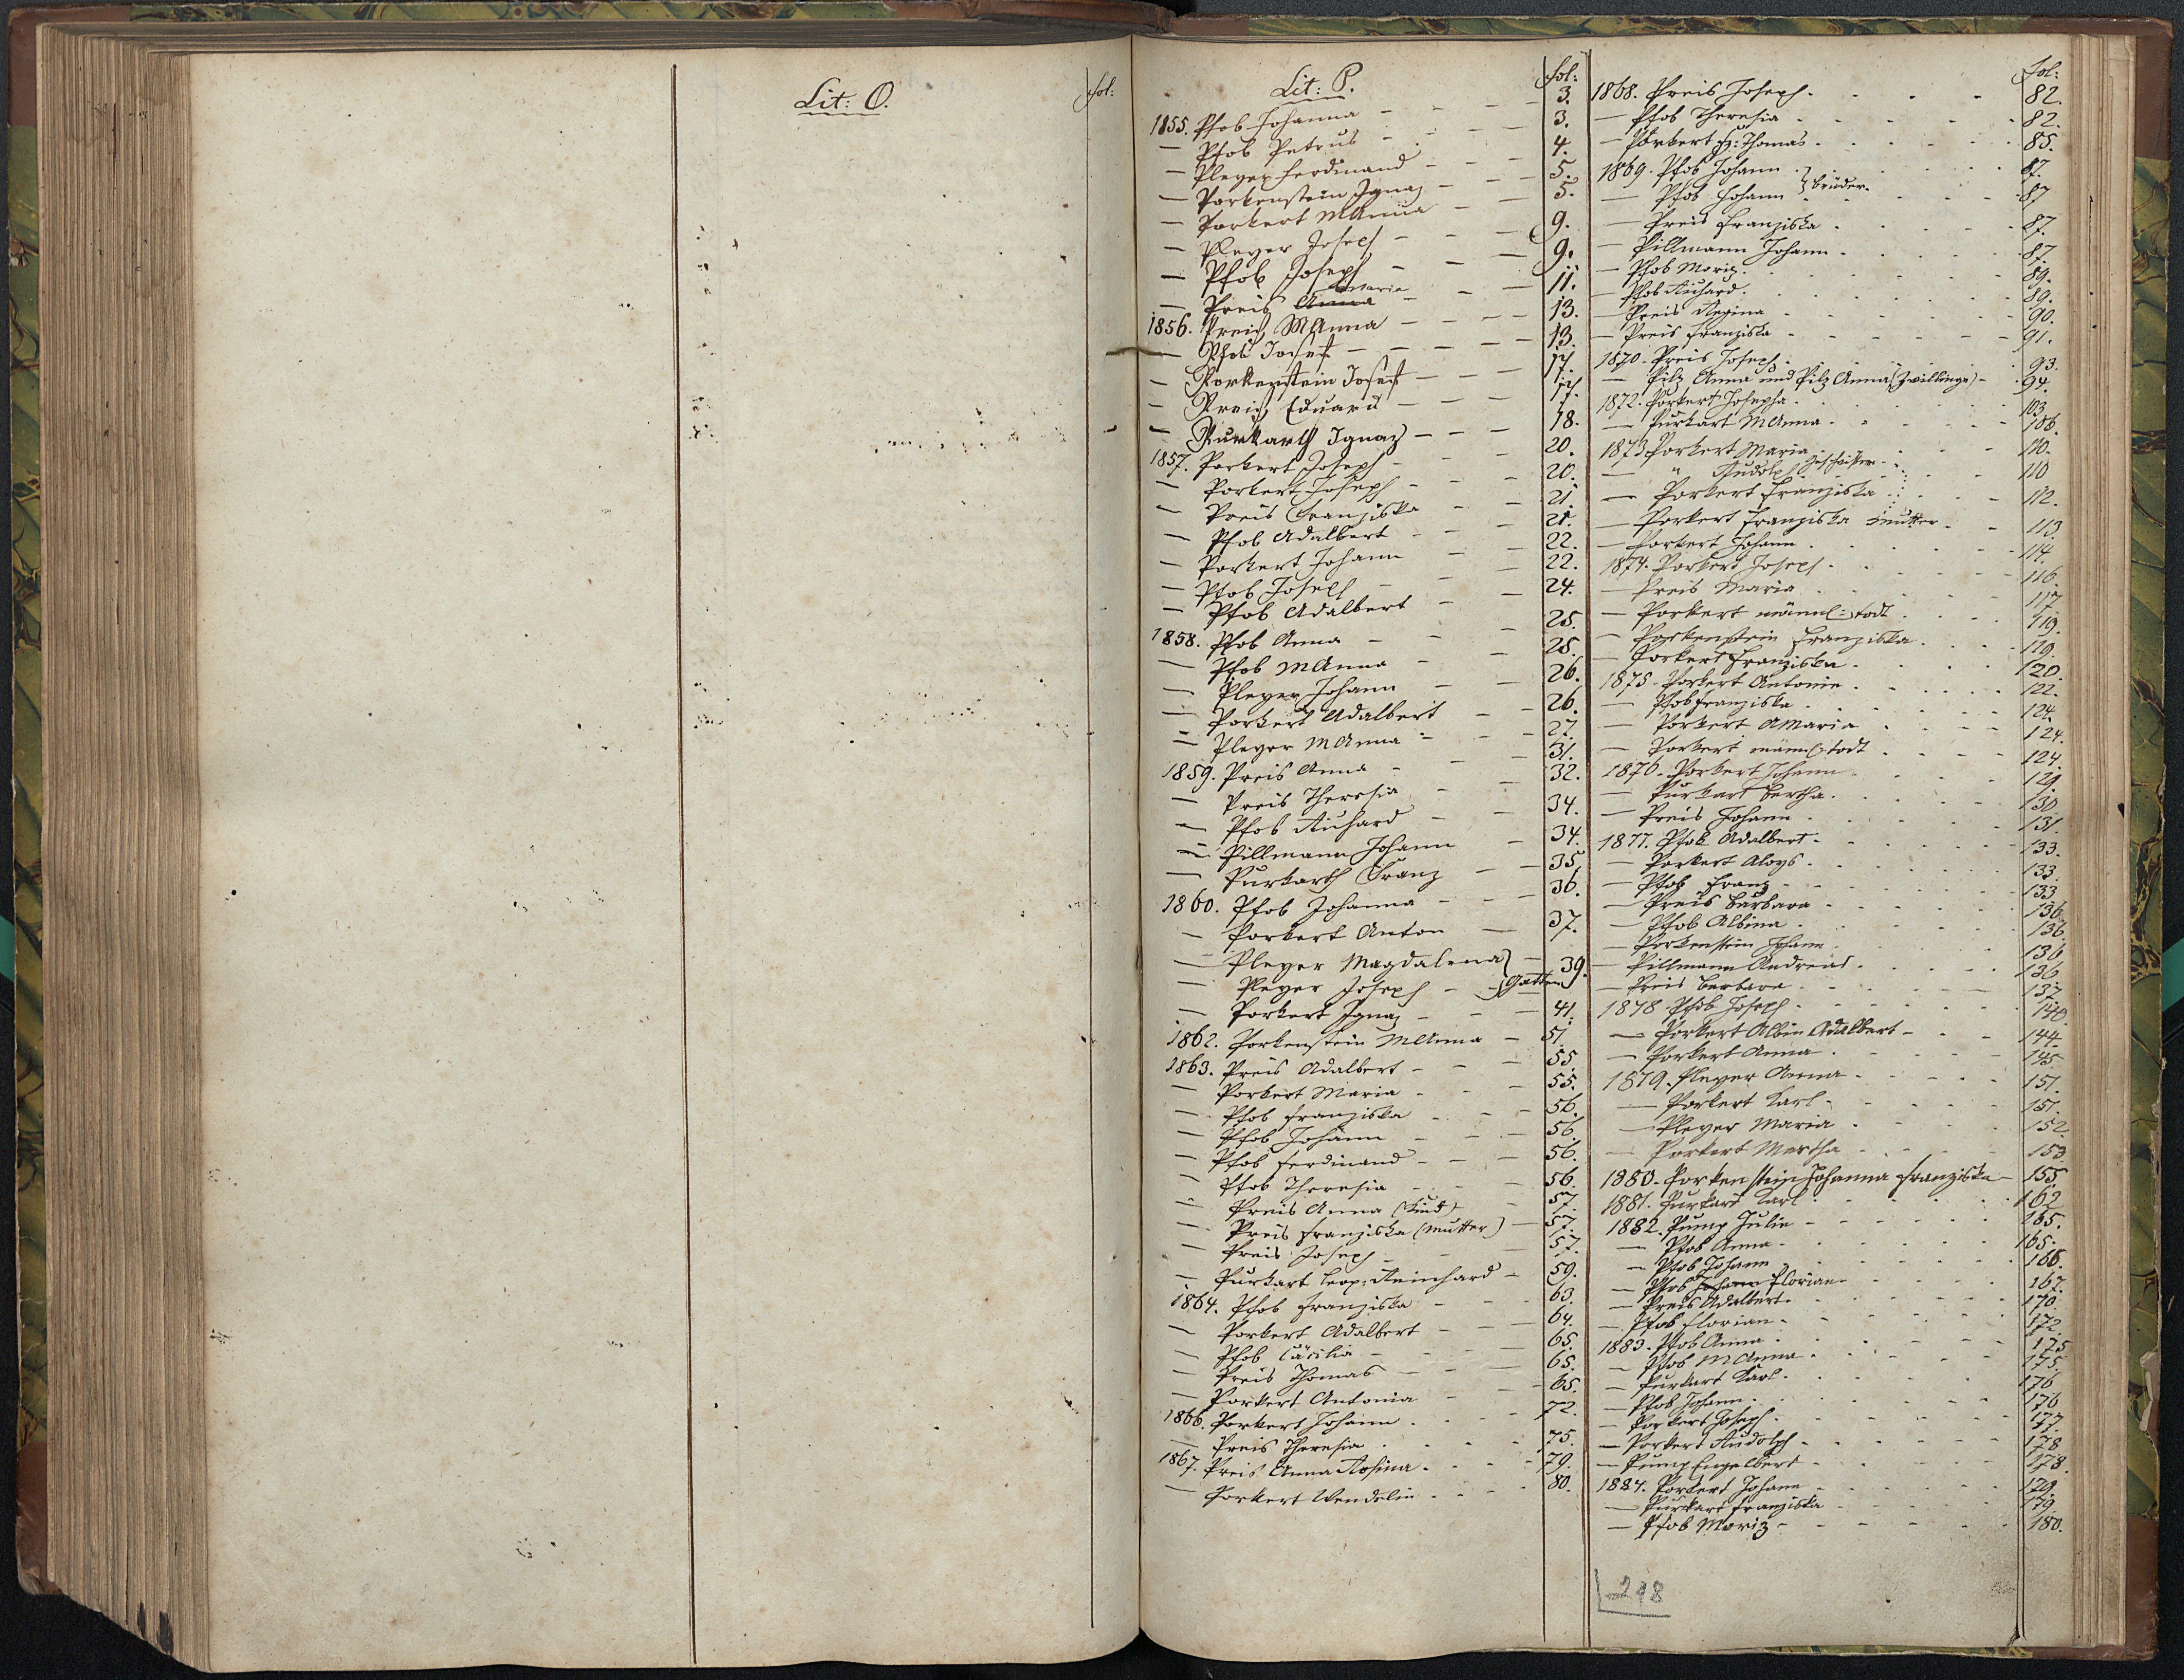 Lit: O.
fol:
Lit: P.
fol:
1855. Pfob Johanna - - - 3.
— Pfob Petrus - - - 3.
— Pleyer Ferdinand - - 4.
— Porkenstein Ignaz - - 5.
— Porkert MAnna - - 5.
— Pleyer Joseph - - - 9.
— Pfob Joseph - - - 9.
Maria
— Preis Anna - - - 11.
1856. Preis MAnna - - - 13.
— Pfob Josef - - - 13.
— Porkenstein Josef - - - 17.
— Preis Eduard - - - 17.
— Purkarth Ignaz - - - 18.
1857. Porkert Joseph - - - 20.
— Porkert Joseph - - - 20.
— Preis Franziska - - 21.
— Pfob Adalbert - - 21.
— Porkert Johann - - 22.
— Pfob Joseph - - - 22.
— Pfob Adalbert - - 24.
1858. Pfob Anna - - - 25.
— Pfob MAnna - - - 25.
— Pleyer Johann - - 26.
— Porkert Adalbert - - 26.
— Pleyer MAnna - - - 27.
1859. Preis Anna - - - 31.
— Preis Theresia - - 32.
— Pfob Richard - - 34.
— Pillmann Johann - 34.
— Purkarth Franz - - 35.
1860. Pfob Johanna - - - 36.
— Porkert Anton - - 37.
— Pleyer Magdalena } -
— Pleyer Joseph - - } Gatten 39.
— Porkert Ignaz - - - 41.
1862. Porkenstein MAnna - 51.
1863. Preis Adalbert - - - 55.
— Porkert Maria - - - 55.
— Pfob Franziska - - - 56.
— Pfob Johann - - - 56.
— Pfob Ferdinand - - - 56.
— Pfob Theresia - - - 56.
— Preis Anna (Kind) - - 57.
— Preis Franziska (Mutter) - 57.
— Preis Joseph - - - 57.
— Purkart Leop: Reinhard - 59.
1864. Pfob Franziska - - - 63.
— Porkert Adalbert - - - 64.
— Pfob Cäcilia - - - 65.
— Preis Thomas - - - 65.
— Porkert Antonia - - 65.
1866. Porkert Johann - - - 72.
— Preis Theresia - - - 75.
1867. Preis Anna Rosina - - - 79.
— Porkert Wendelin - - - 80.
fol:
1868. Preis Joseph - - - 82.
— Pfob Theresia - - - 82.
— Porkert Fz: Thomas - - - 85.
1869. Pfob Johann } - - - 87.
— Pfob Johann } Brüder - - 87
— Preis Franziska - - - 87.
— Pillmann Johann - - - 87.
— Pfob Moriz - - - 89.
— Pfob Richard - - - 89.
— Preis Regina - - - 90.
— Preis Franziska - - - 91.
1870. Preis Joseph - - - 93.
— Pilz Anna und Pilz Anna (Zwillinge) - 94.
1872. Porkert Josepha - - - 103
— Purkart MAnna - - - 106.
1873. Porkert Maria - - - 110.
— " Rudolph Geschwister - - 110
— Porkert Franziska - - - 112.
— Porkert Franziska Mutter - - 113.
— Porkert Johann - - - 114.
1874. Porkert Joseph - - - 116.
— Preis Maria - - - 117.
— Porkert männl: todt - - - 119.
— Porkenstein Franziska - - - 119.
— Porkert Franziska - - - 120.
1875. Porkert Antonie - - - 122.
— Pfob Franziska - - - 124.
— Porkert AMaria - - - 124.
— Porkert männl: todt - - - 124.
1876. Porkert Johann - - - 129.
— Purkart Bertha - - - 130
— Preis Johann - - - 131.
1877. Pfob Adalbert - - - 133.
— Porkert Aloys - - - 133.
— Pfob Franz - - - 133
— Preis Barbara - - - 136.
— Pfob Albina - - - 136.
— Porkenstein Johann - - - 136
— Pillmann Andreas - - - 136
— Preis Barbara - - - 137.
1878. Pfob Joseph - - - 140.
— Porkert Albin Adalbert - - 144.
— Porkert Anna - - - 145.
1879. Pleyer Anna - - - 151.
— Porkert Karl - - - 151.
— Pleyer Maria - - - 152
— Porkert Martha - - - 153
1880. Porkenstein Johanna Franziska - 155.
1881. Purkart Karl - - - 162
1882. Pump Julie - - - 165.
— Pfob Anna - - - 165.
— Pfob Johann - - - 166.
— Pfob Johann Florian - - - 167.
— Preis Adalbert - - - 170.
— Pfob Florian - - - 172
1883. Pfob Anna - - - 175
— Pfob MAnna - - - 175.
— Purkart Karl - - - 176
— Pfob Johann - - - 176
— Porkert Joseph - - - 177.
— Porkert Rudolph - - - 178
— Pump Engelbert - - - 178.
1884. Porkert Johann - - - 179.
— Purkart Franziska - - - 179
— Pfob Moriz - - - 180.
298